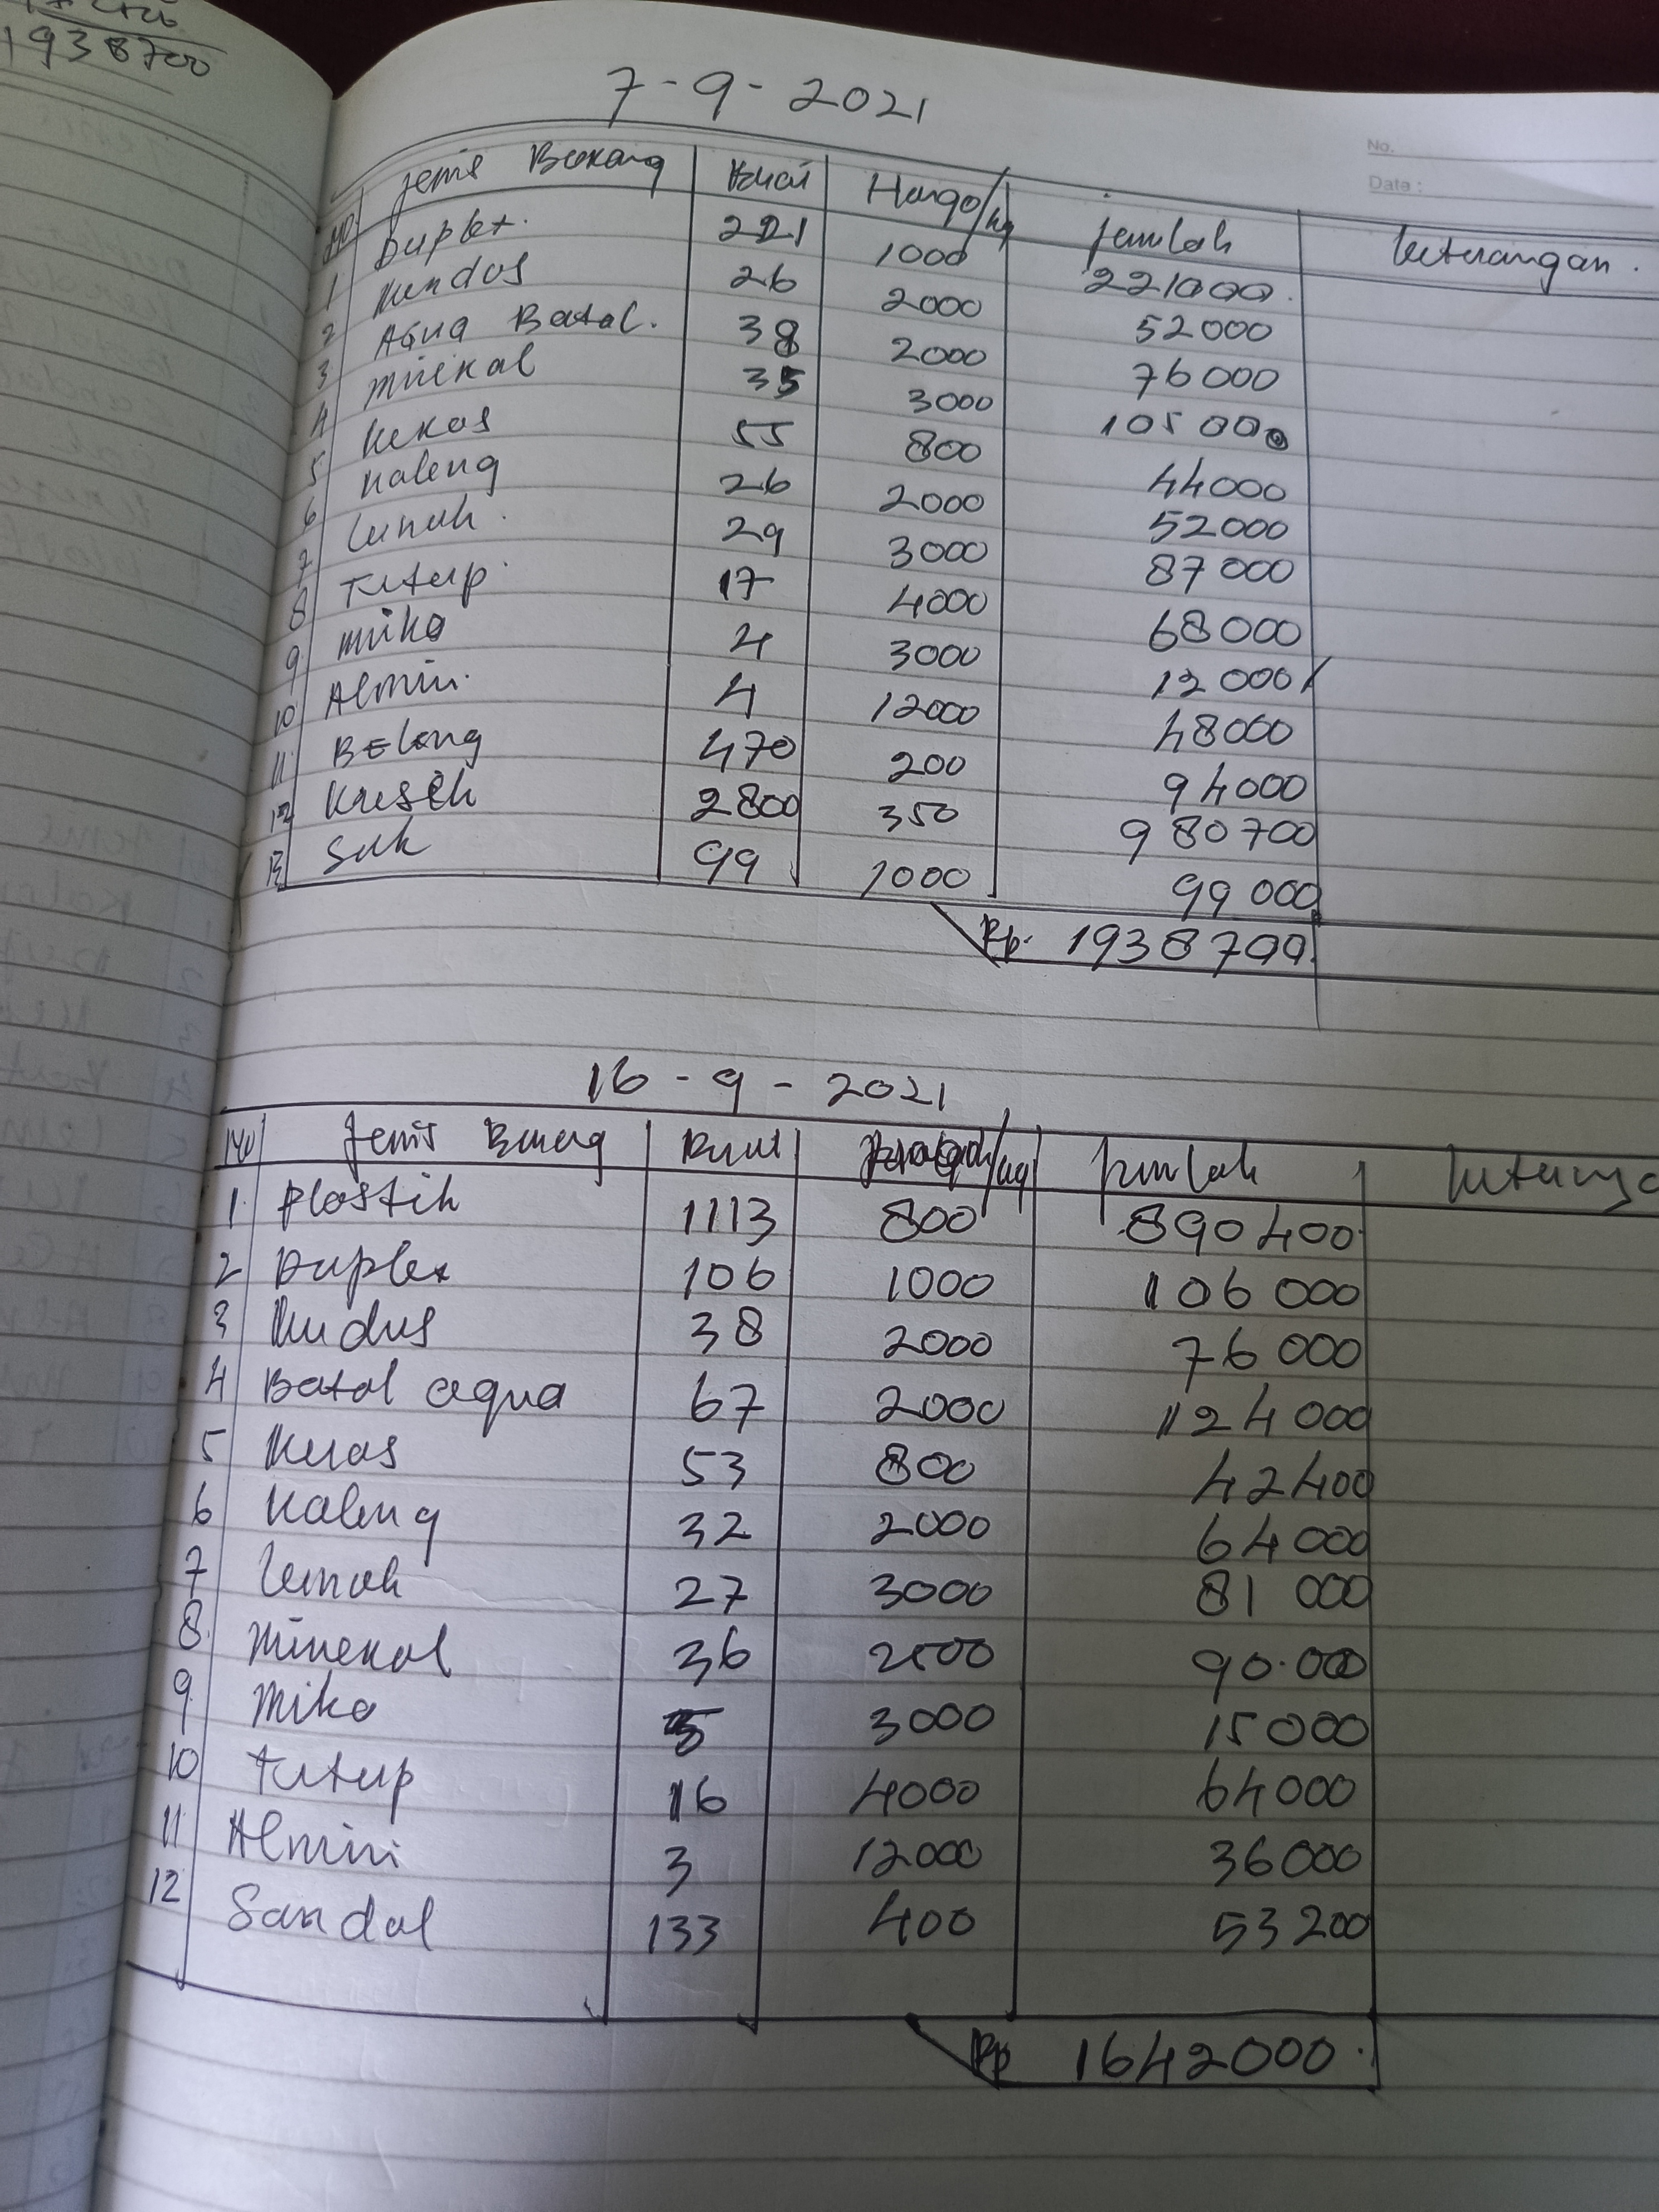 1938700
7-9-2021
No.
Date :
NO Jenis Barang Kuai Harga/kg jumlah keterangan.
1 Duplex. 221 1000 221000.
2 Kerdus 26 2000 52000
3 Aqua Batal. 38 2000 76000
4 Minekal 35 3000 105000
5 Kekas 55 800 44000
6 Kaleng 26 2000 52000
7 Lunak. 29 3000 87000
8 Tutup. 17 4000 68000
9. Mika 4 3000 12000
10 Almin. 4 12000 48000
11 Belong 470 200 94000
12 Kresek 2800 350 980700
13 Sak 99 1000 99000
Rp. 1938700.
16-9-2021
NO Jenis Barang /kg Jumlah
1. Plastik 1113 800 890400.
2 Duplex 106 1000 106000
3 Kudus 38 2000 76000
4 Batal aqua 67 2000 124000
5 Keras 53 800 42400
6 Kaleng 32 2000 64000
7 Lemak 27 3000 81000
8. Minekal 36 2500 90.000
9. Mika 5 3000 15000
10 Tutup 16 4000 64000
11 Almini 3 12000 36000
12 Sandal 133 400 53200
Rp 1642000.